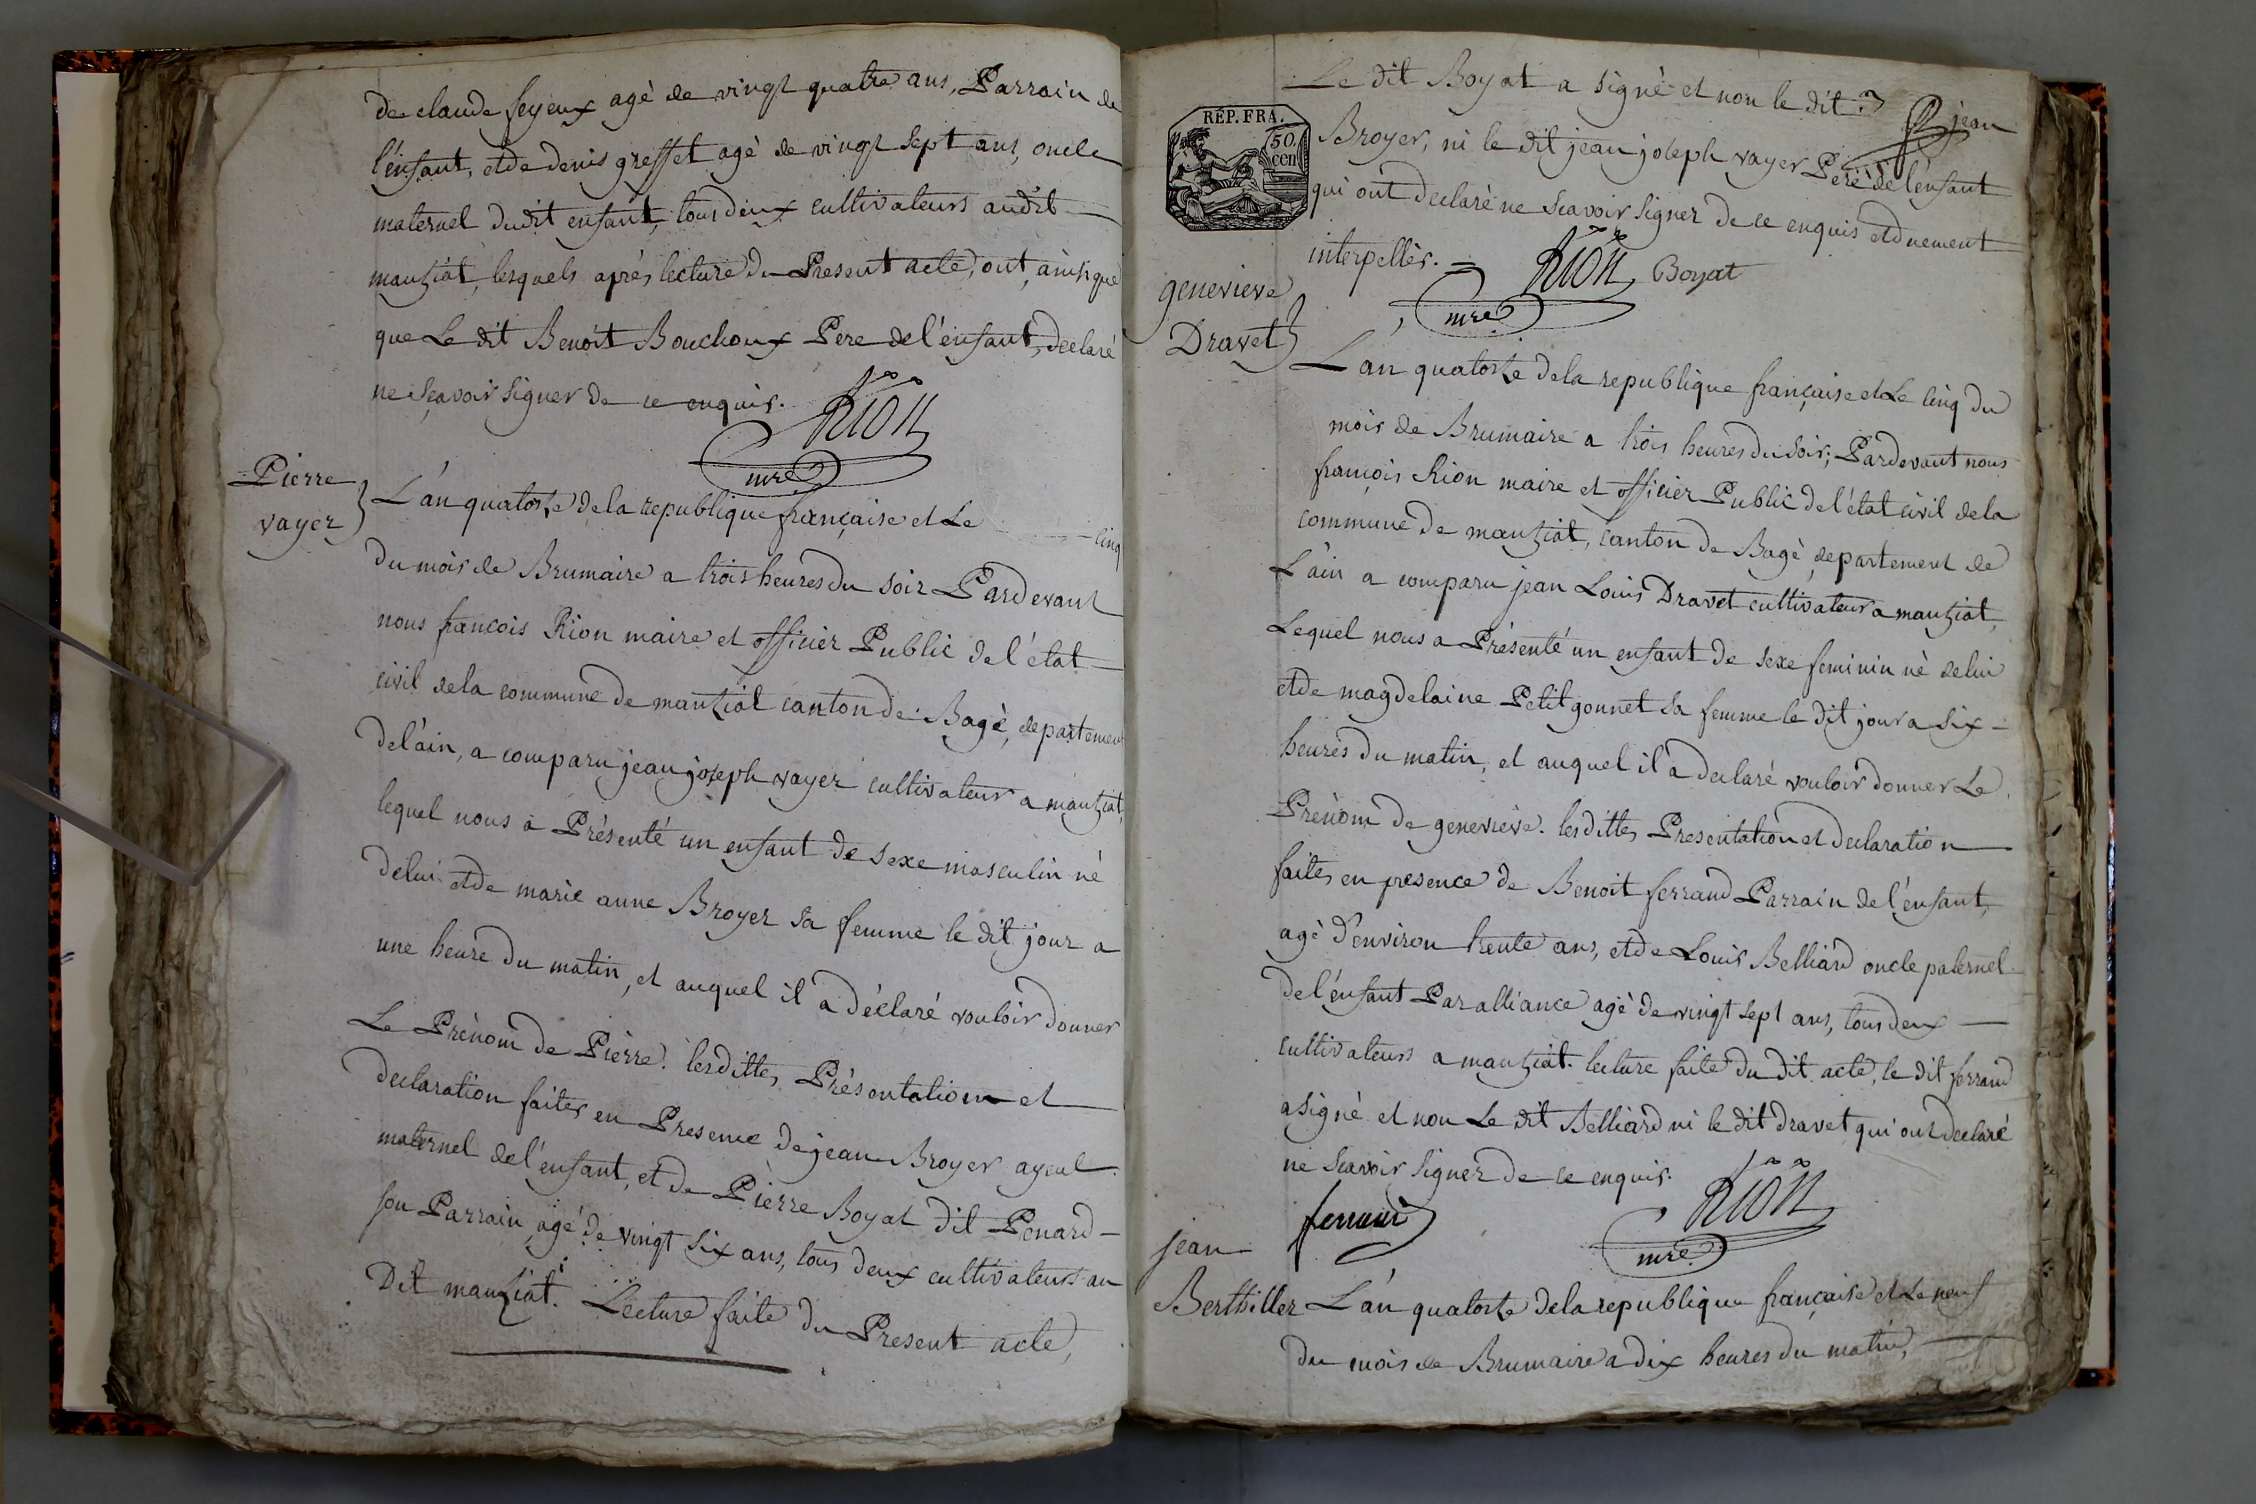 de claude feyeux agè de vingt quatre ans, Parrain de
l'enfant, et de denis greffet agè de vingt sept ans, oncle
maternel dudit enfant, tous deux cultivateurs audit
mantziat, lesquels après lecture du Present acte, ont, ainsi que
que Le dit Benoit Bouchoux Pere de l'enfant, declaré
ne sçavoir signer de ce enquis. Rion
mre
Pierre
vayer
L'an quatorze de la republique française et Le cinq
du mois de Brumaire a trois heures du soir Pardevant
nous francois Rion maire et officier Public de l'état
civil de la commune de mantziat canton de Bagè, departement
de l'ain, a comparu jean joseph vayer cultivateur a mantziat,
lequel nous a Présenté un enfant de sexe masculin nè
de lui et de marie anne Broyer sa femme le dit jour a
une heure du matin, et auquel il a déclaré vouloir donner
Le Prènom de Pièrre. lesdittes Présentation et
declaration faites en Presence de jean Broyer ayeul
maternel de l'enfant, et de Pièrre Boyat dit Penard
son Parrain agé de vingt six ans, tous deux cultivateurs au
Dit mantziat. Lecture faite du Present acte,
Le dit Boyat a signè et non le dit jean
REP. FRA.
50
cen
Broyer, ni le dit jean joseph vayer Père de l'enfant
qui ont declaré ne sçavoir signer de ce enquis et duement
interpellès. Rion Boyat
mre
genevieve
Dravet
L'an quatorze de la republique française et Le cinq du
mois de Brumaire a trois heures du soir; Pardevant nous
françois Rion maire et officier Public de l'état civil de la
commune de mantziat, canton de Bagè departement de
L'ain a comparu jean Louis Dravet cultivateur a mantziat,
Lequel nous a Présenté un enfant de sexe feminin nè de lui
et de magdelaine Petitgonnet sa femme le dit jour a six
heures du matin, et auquel il a declaré vouloir donner Le
Prènom de genevieve. lesdittes Presentation et declaration
faites en presence de Benoit ferrand Parrain de l'enfant,
agè d'environ trente ans, et de Louis Belliard oncle paternel
de l'enfant Par alliance agè de vingt sept ans, tous deux
cultivateurs a mantziat. lecture faite du dit acte, le dit ferrand
a signè et non Le dit Belliard ni le dit dravet qui ont declaré
ne sçavoir signer de ce enquis.
ferrand Rion
mre
jean
Berthiller
L'an quatorze de la republique française et Le neuf
du mois de Brumaire a dix heures du matin,